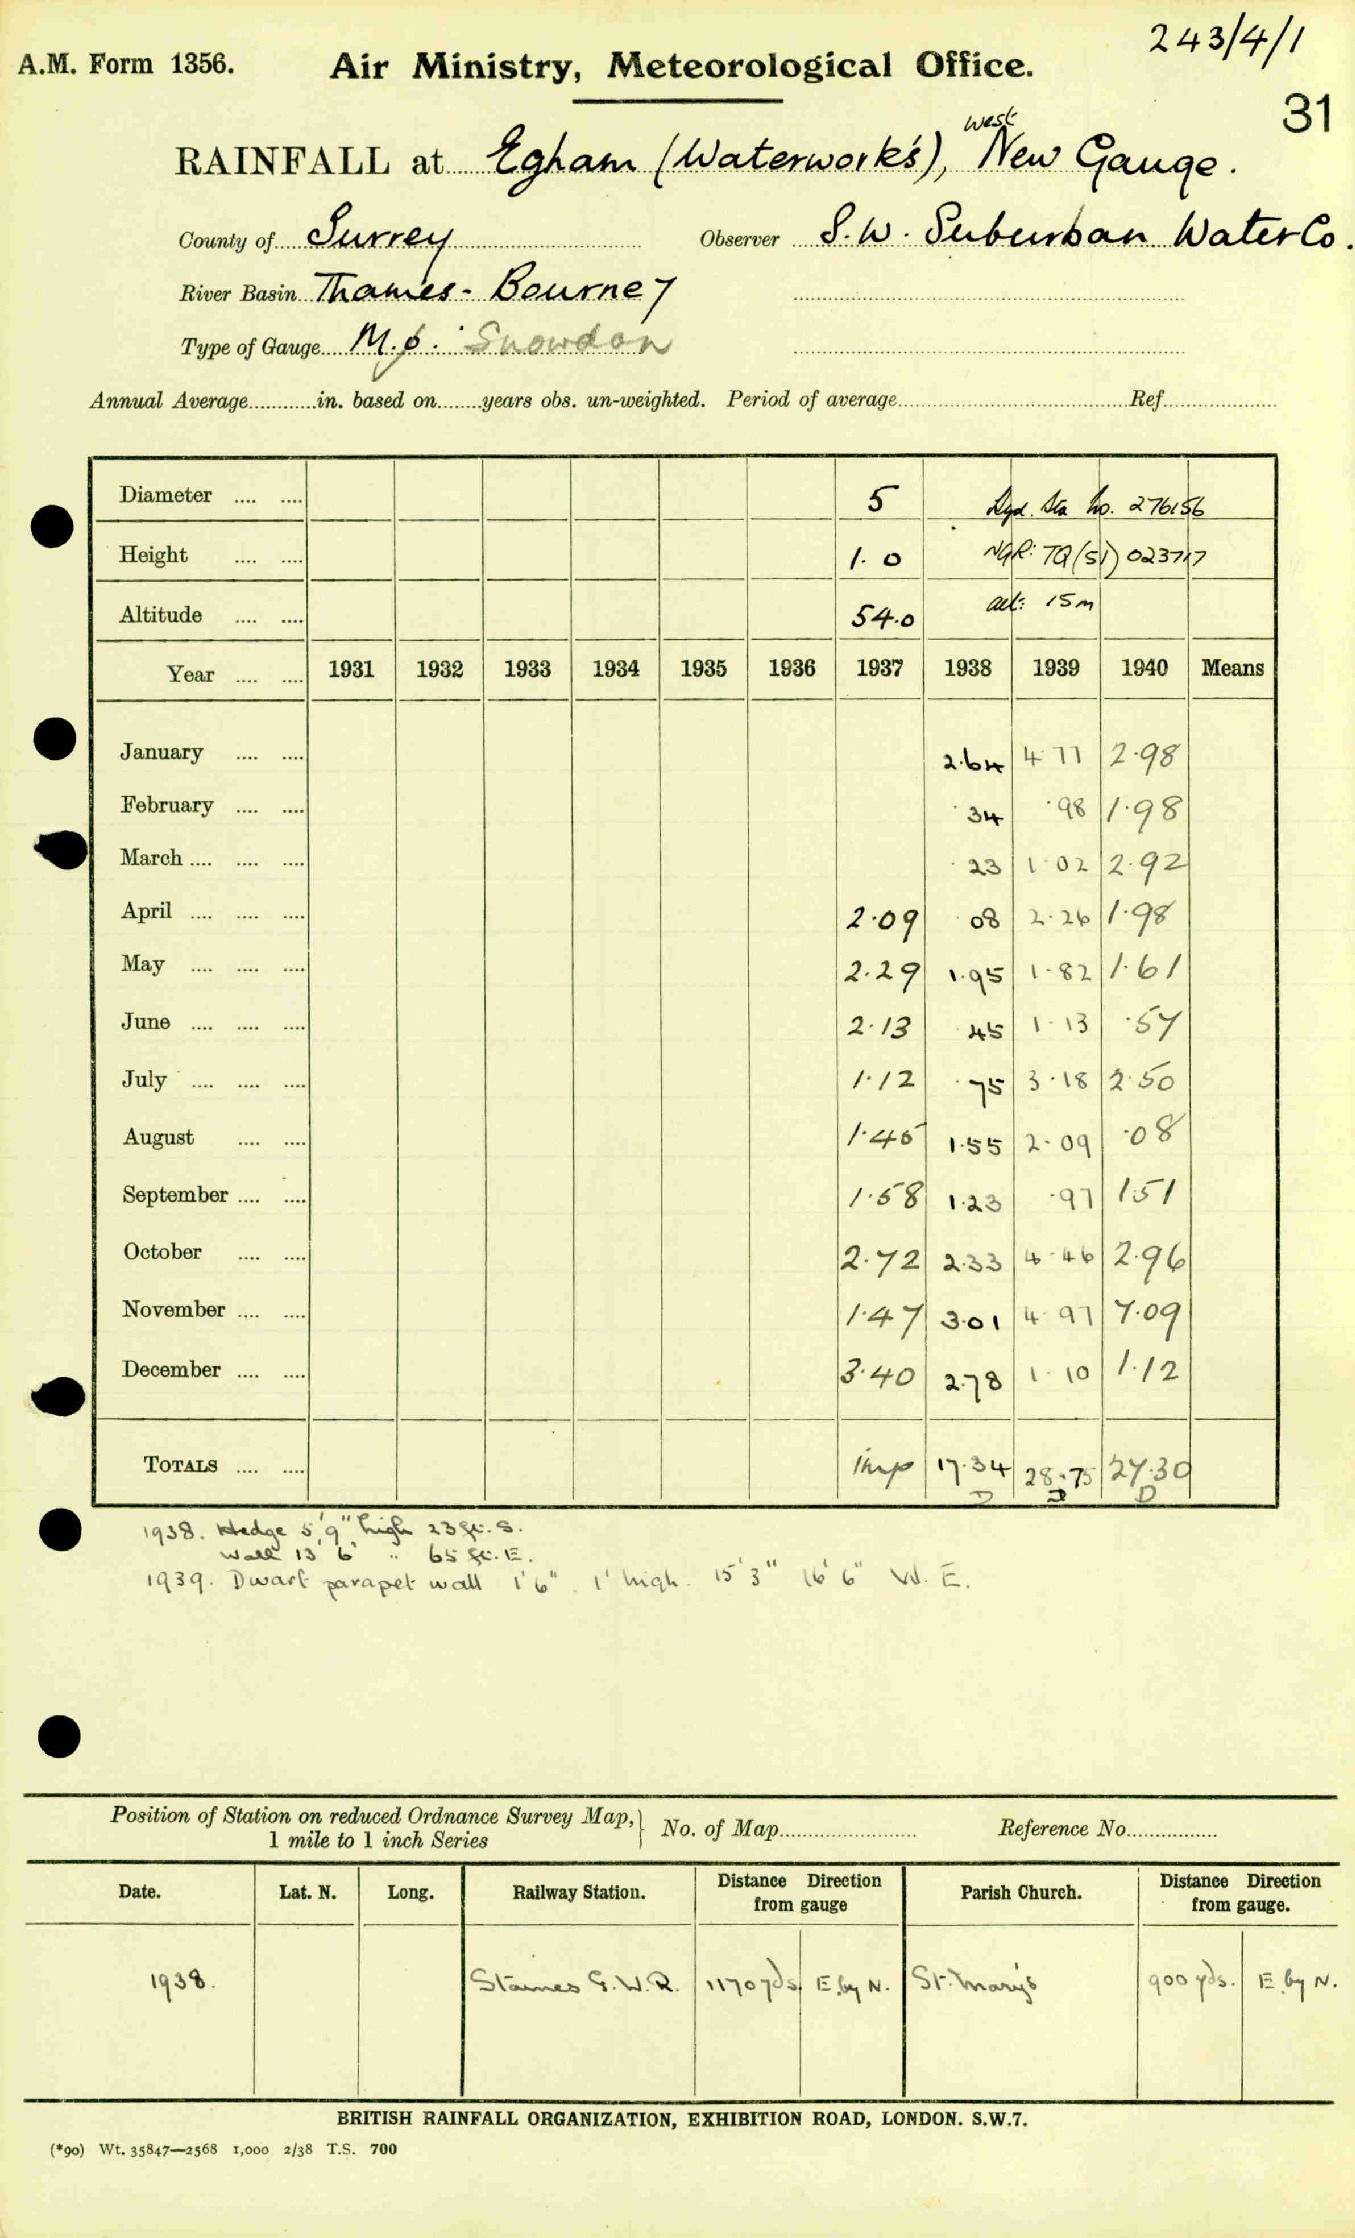 243/4/1
A.M. Form 1356. Air Ministry, Meteorological Office.
31
west
RAINFALL at Egham (Waterworks), New Gauge.
County of Surrey Observer S.W. Suburban Water Co.
River Basin Thames - Bourney
Type of Gauge M.O. Snowdon
Annual Average............in. based on........years obs. un-weighted. Period of average.................................Ref...................
Diameter .... .... 5 Hyd. Sta No. 276156
Height .... .... 1.0 NGR: TQ(51) 023717
Altitude .... .... 54.0 alt: 15m
Year .... .... 1931 1932 1933 1934 1935 1936 1937 1938 1939 1940 Means
January .... .... 2.64 4.77 2.98
February .... .... .34 .98 1.98
March .... .... .... .23 1.02 2.92
April .... .... .... 2.09 .08 2.26 1.98
May .... .... .... 2.29 1.95 1.82 1.61
June .... .... .... 2.13 .45 1.13 .57
July .... .... .... 1.12 .75 3.18 2.50
August .... .... 1.45 1.55 2.09 .08
September .... .... 1.58 1.23 .97 1.51
October .... .... 2.72 2.33 4.46 2.96
November .... .... 1.47 3.01 4.97 7.09
December .... .... 3.40 2.78 1.10 1.12
TOTALS .... .... imp 17.34 28.75 27.30
D D D
1938. Hedge 5'9" high 23 ft. S.
Wall 13'6" " 65 ft. E.
1939. Dwarf parapet wall 1'6". 1' high. 15'3" 16'6" W. E.
Position of Station on reduced Ordnance Survey Map, } No. of Map........................ Reference No................
1 mile to 1 inch Series
Date. Lat. N. Long. Railway Station. Distance Direction from gauge Parish Church. Distance Direction from gauge.
1938. Staines G.W.R. 1170 yds. E. by N. St. Mary's 900 yds. E. by N.
BRITISH RAINFALL ORGANIZATION, EXHIBITION ROAD, LONDON. S.W.7.
(*90) Wt. 35847—2568 1,000 2/38 T.S. 700